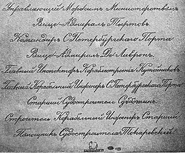 Управляющій Морскимъ Министерствомъ
Вице-Адмиралъ Тыртовъ
Командиръ С.Петербургскаго Порта
Вице-Адмиралъ Де Ливронъ
Главный Инспекторъ Кораблестроенія Кутейниковъ
Главный Корабельный Инженеръ С.Петербургскаго Порта
Старшій Судостроитель
Строитель Корабельный Инженеръ Старшій
Помощникъ Судостроителя